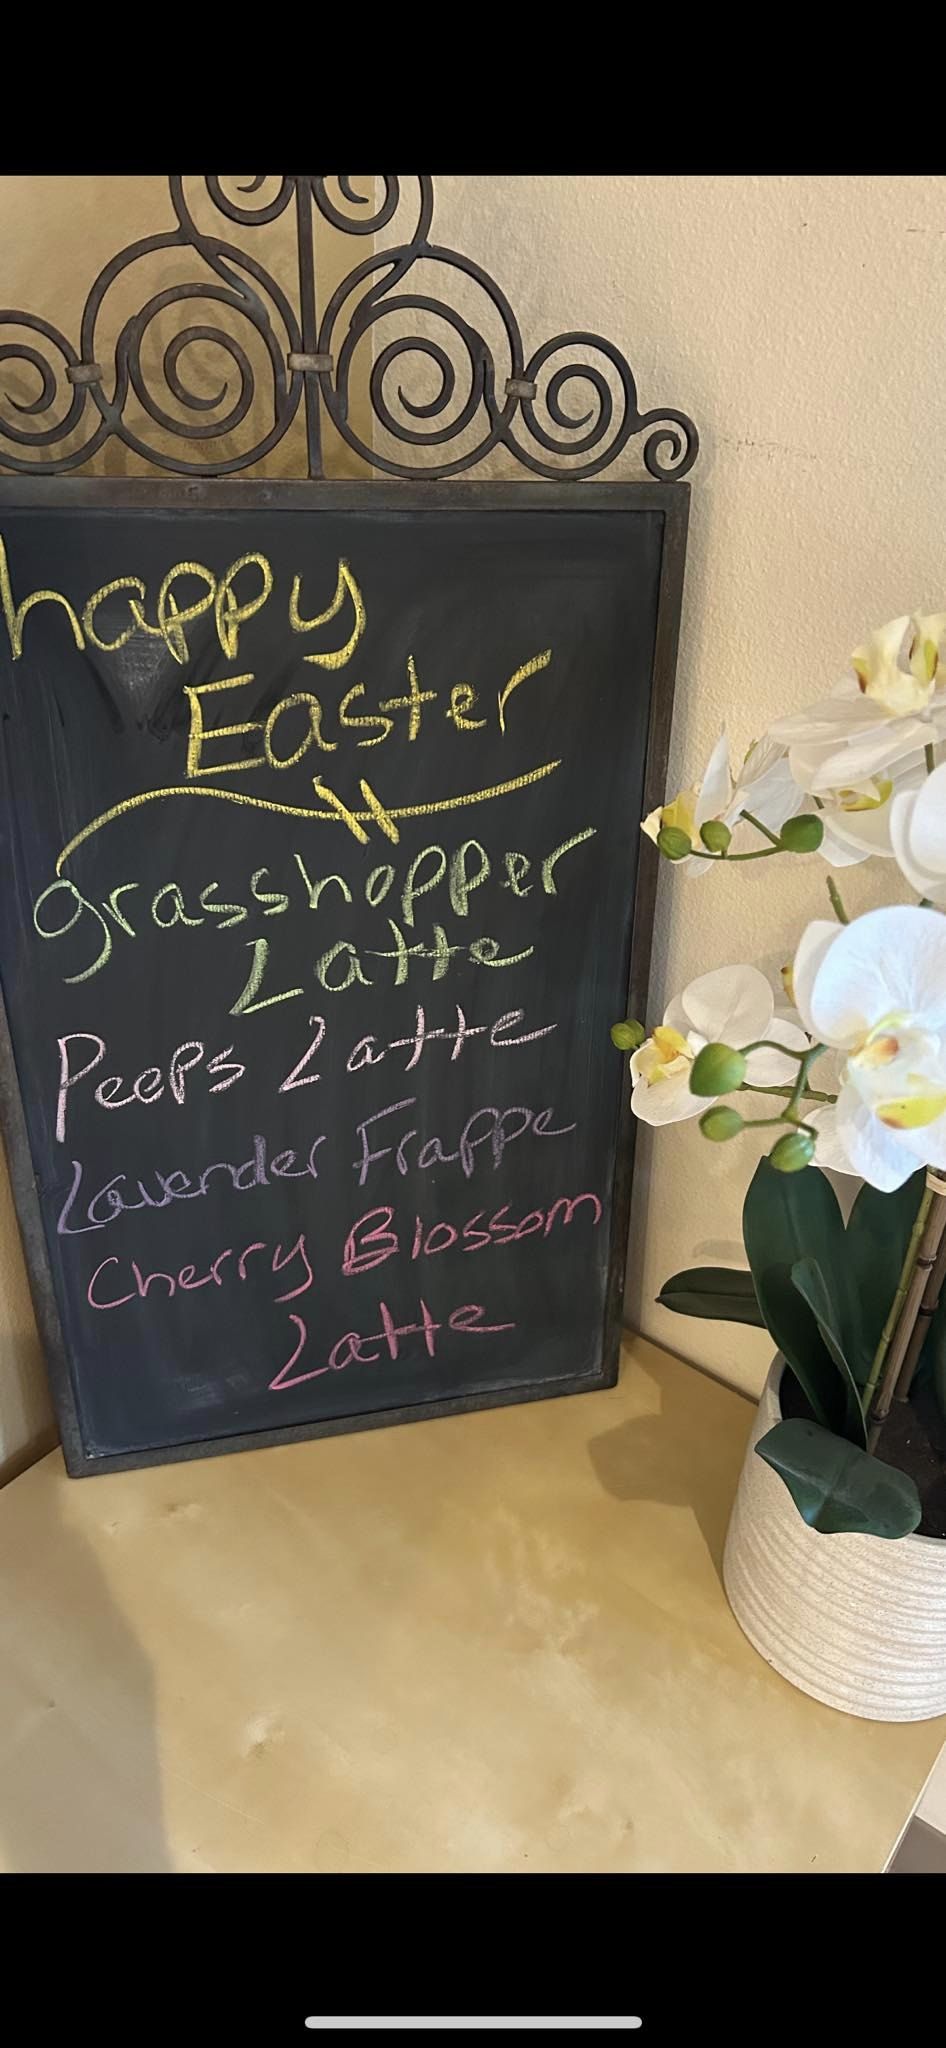 happy
Easter
grasshopper
Latte
Peeps Latte
Lavender Frappe
Cherry Blossom
Latte